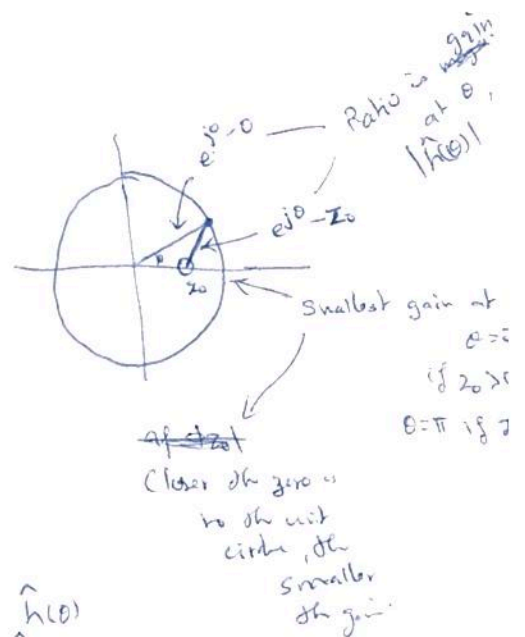 gain
Ratio is
at θ,
|ĥ(θ)|
e^{jθ} - 0
e^{jθ} - z₀
θ
z₀
Smallest gain at
θ =
if z₀ >
θ = π if
Closer the zero is
to the unit
circle, the
smaller
the gain
ĥ(θ)